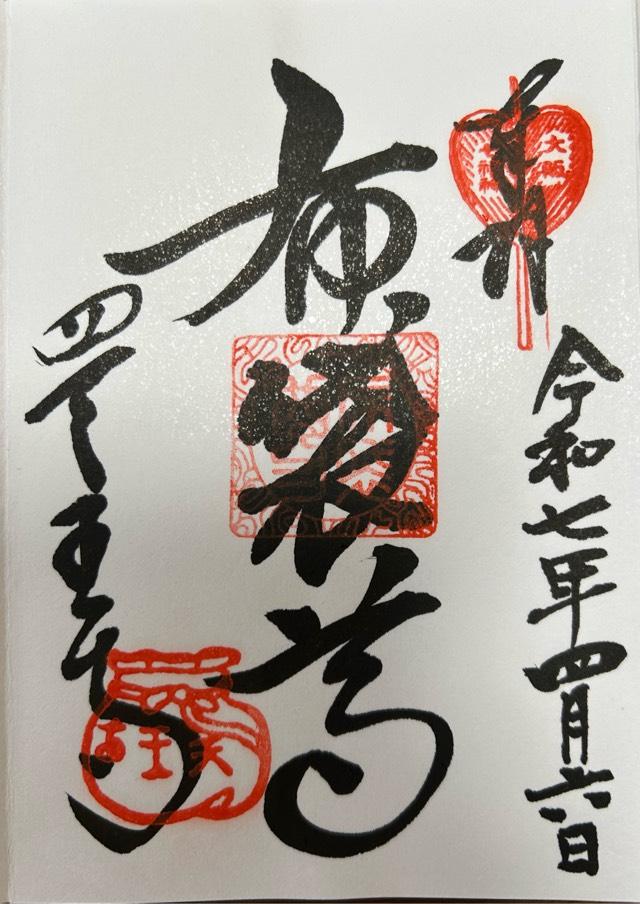 奉拝
大阪
令和七年四月六日
布袋尊
四天王寺